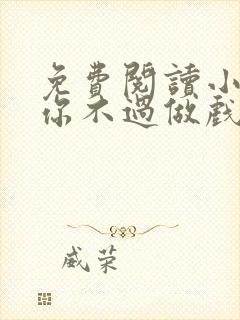 免費閱讀小
你不過做戲
威荣